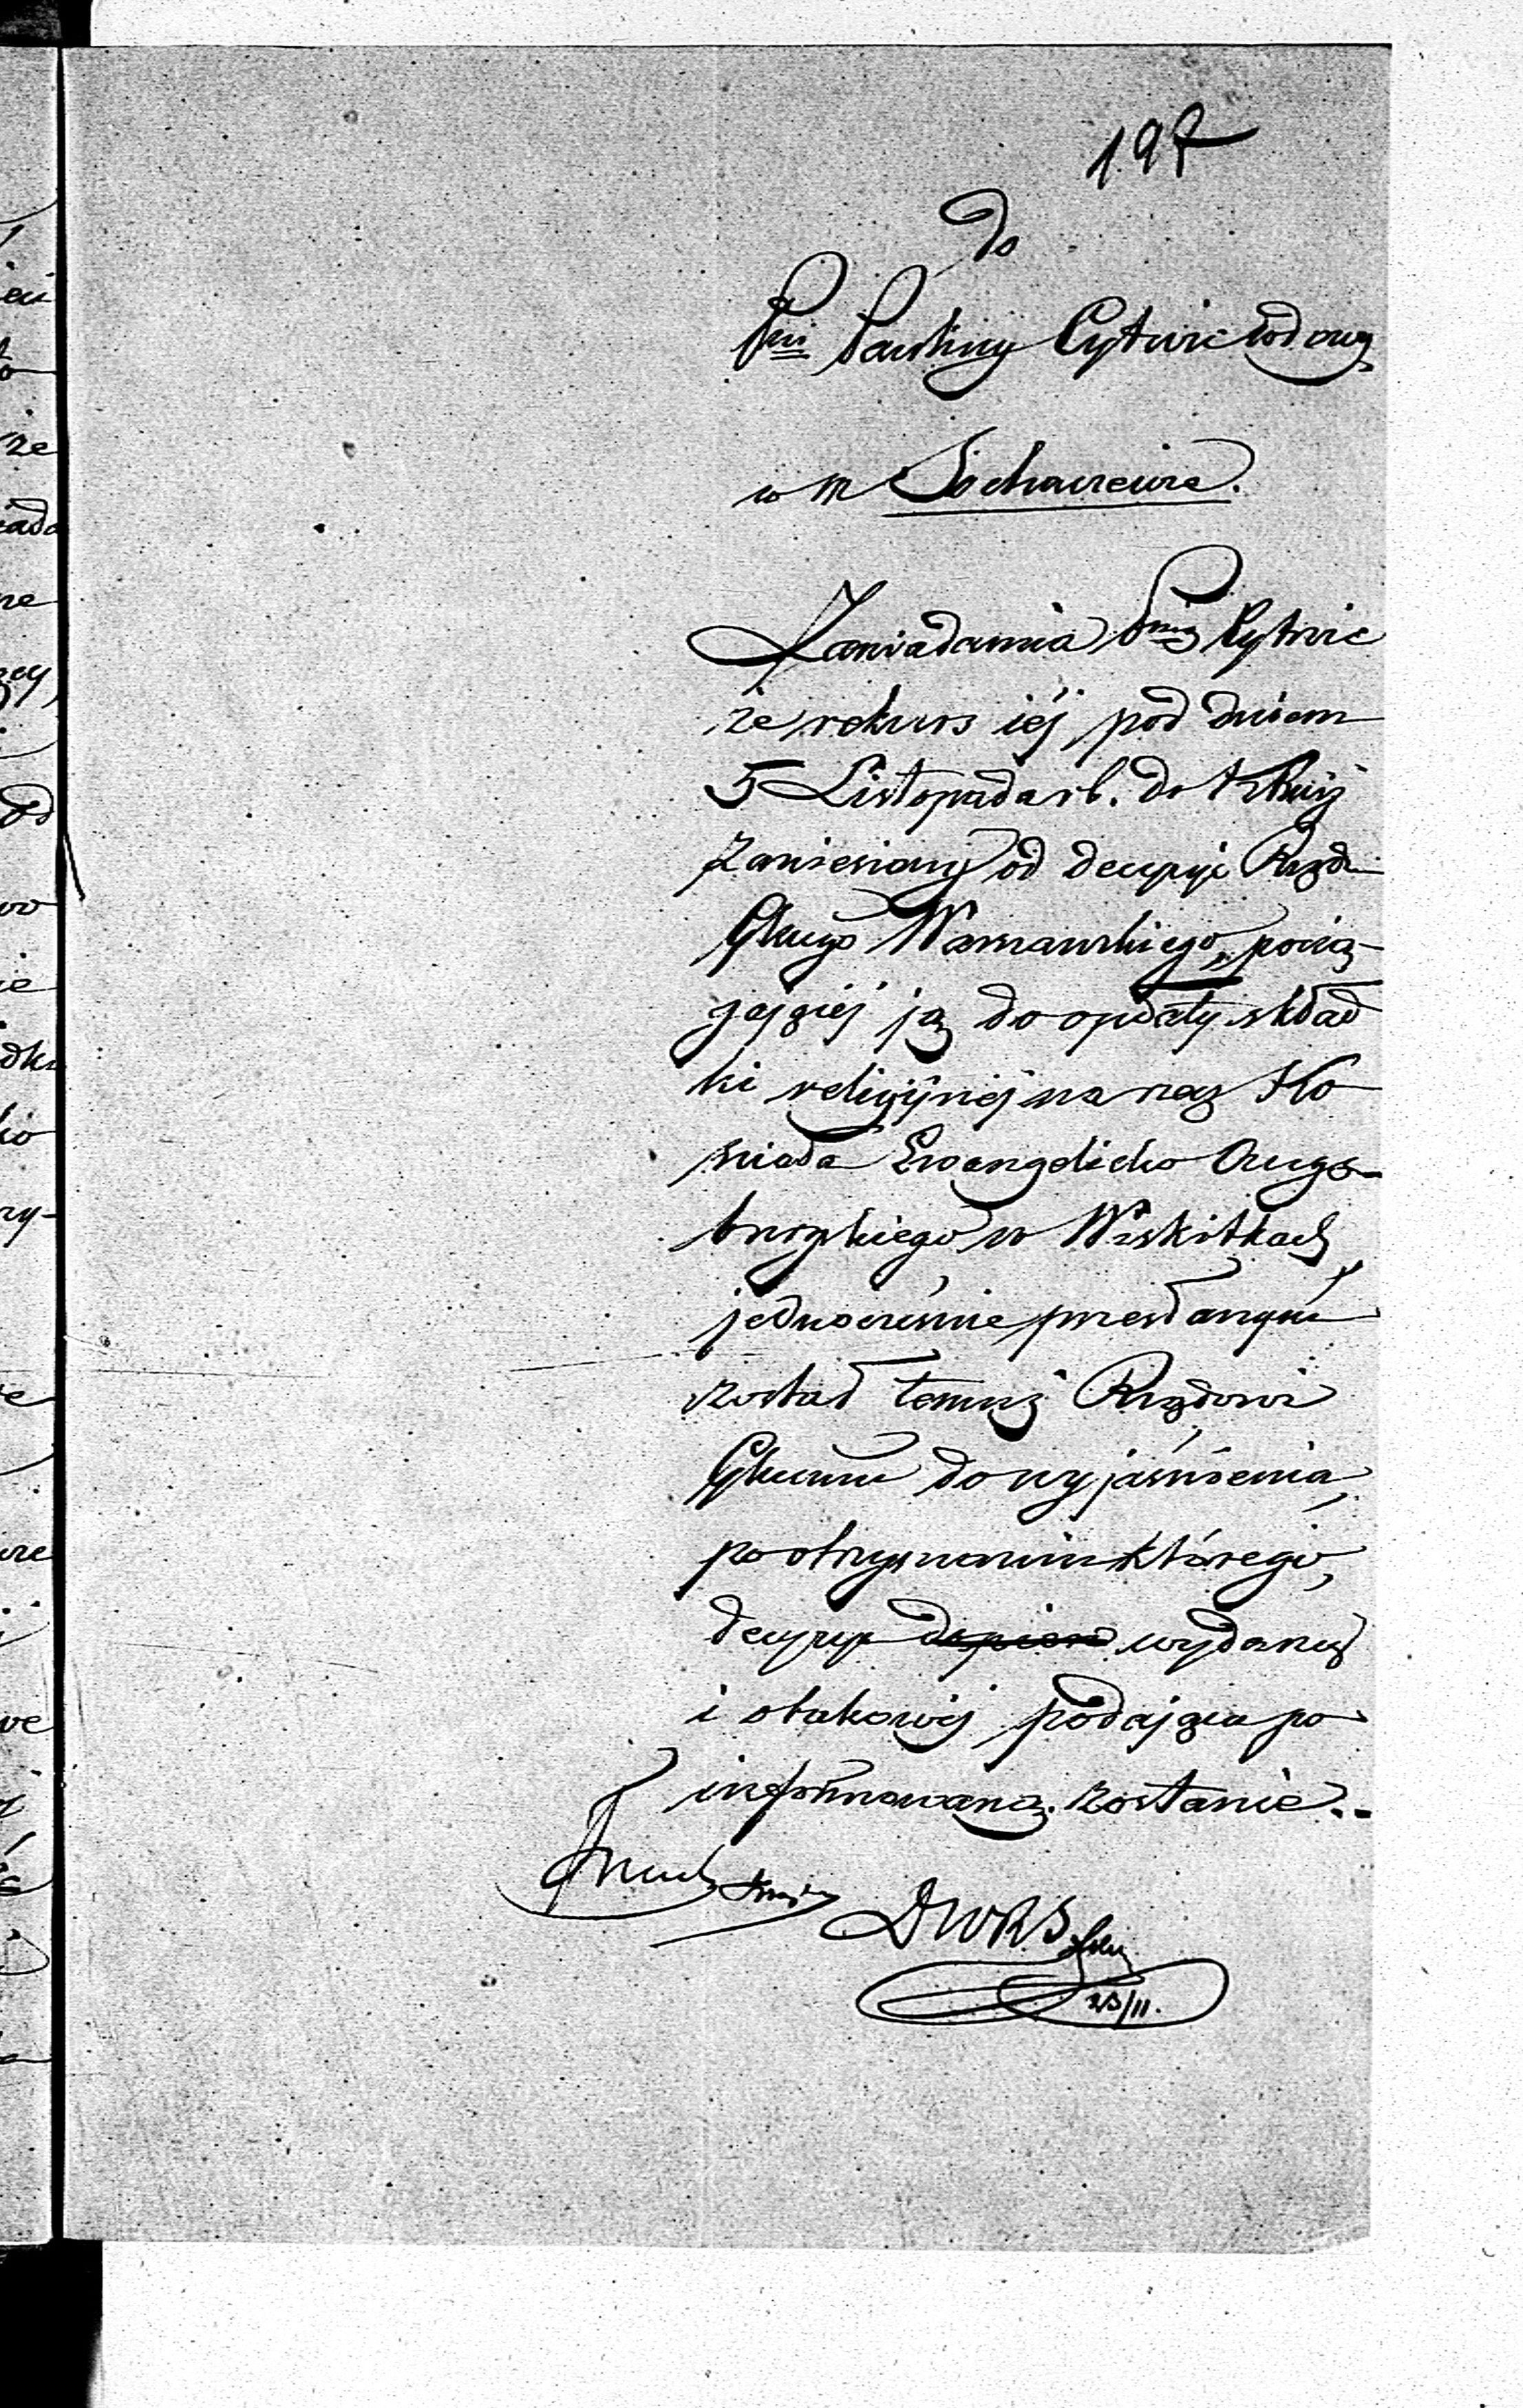 197
Do
Pni Pauliny Cytwic wdowy
w m Sochaczewie.
Zawiadamia Pnią Cytwic
że rekurs iéj pod dniem
5 Listopada rb. do
zaniesiony od decyzyi Rządu
Gbnego Warszawskiego, pocią-
gającéj ją do opłaty skład
ki religijnéj na rzecz Ko
ścioła Ewangelicko Augs-
burgskiego w Wiskitkach
jednocześnie przesłanym
został temuż Rządowi
Gbnemu do wyjaśnienia,
po otrzymaniu którego,
decyzya wydaną
i o takowéj podająca po
informowaną zostanie.
DWRS
23/11.